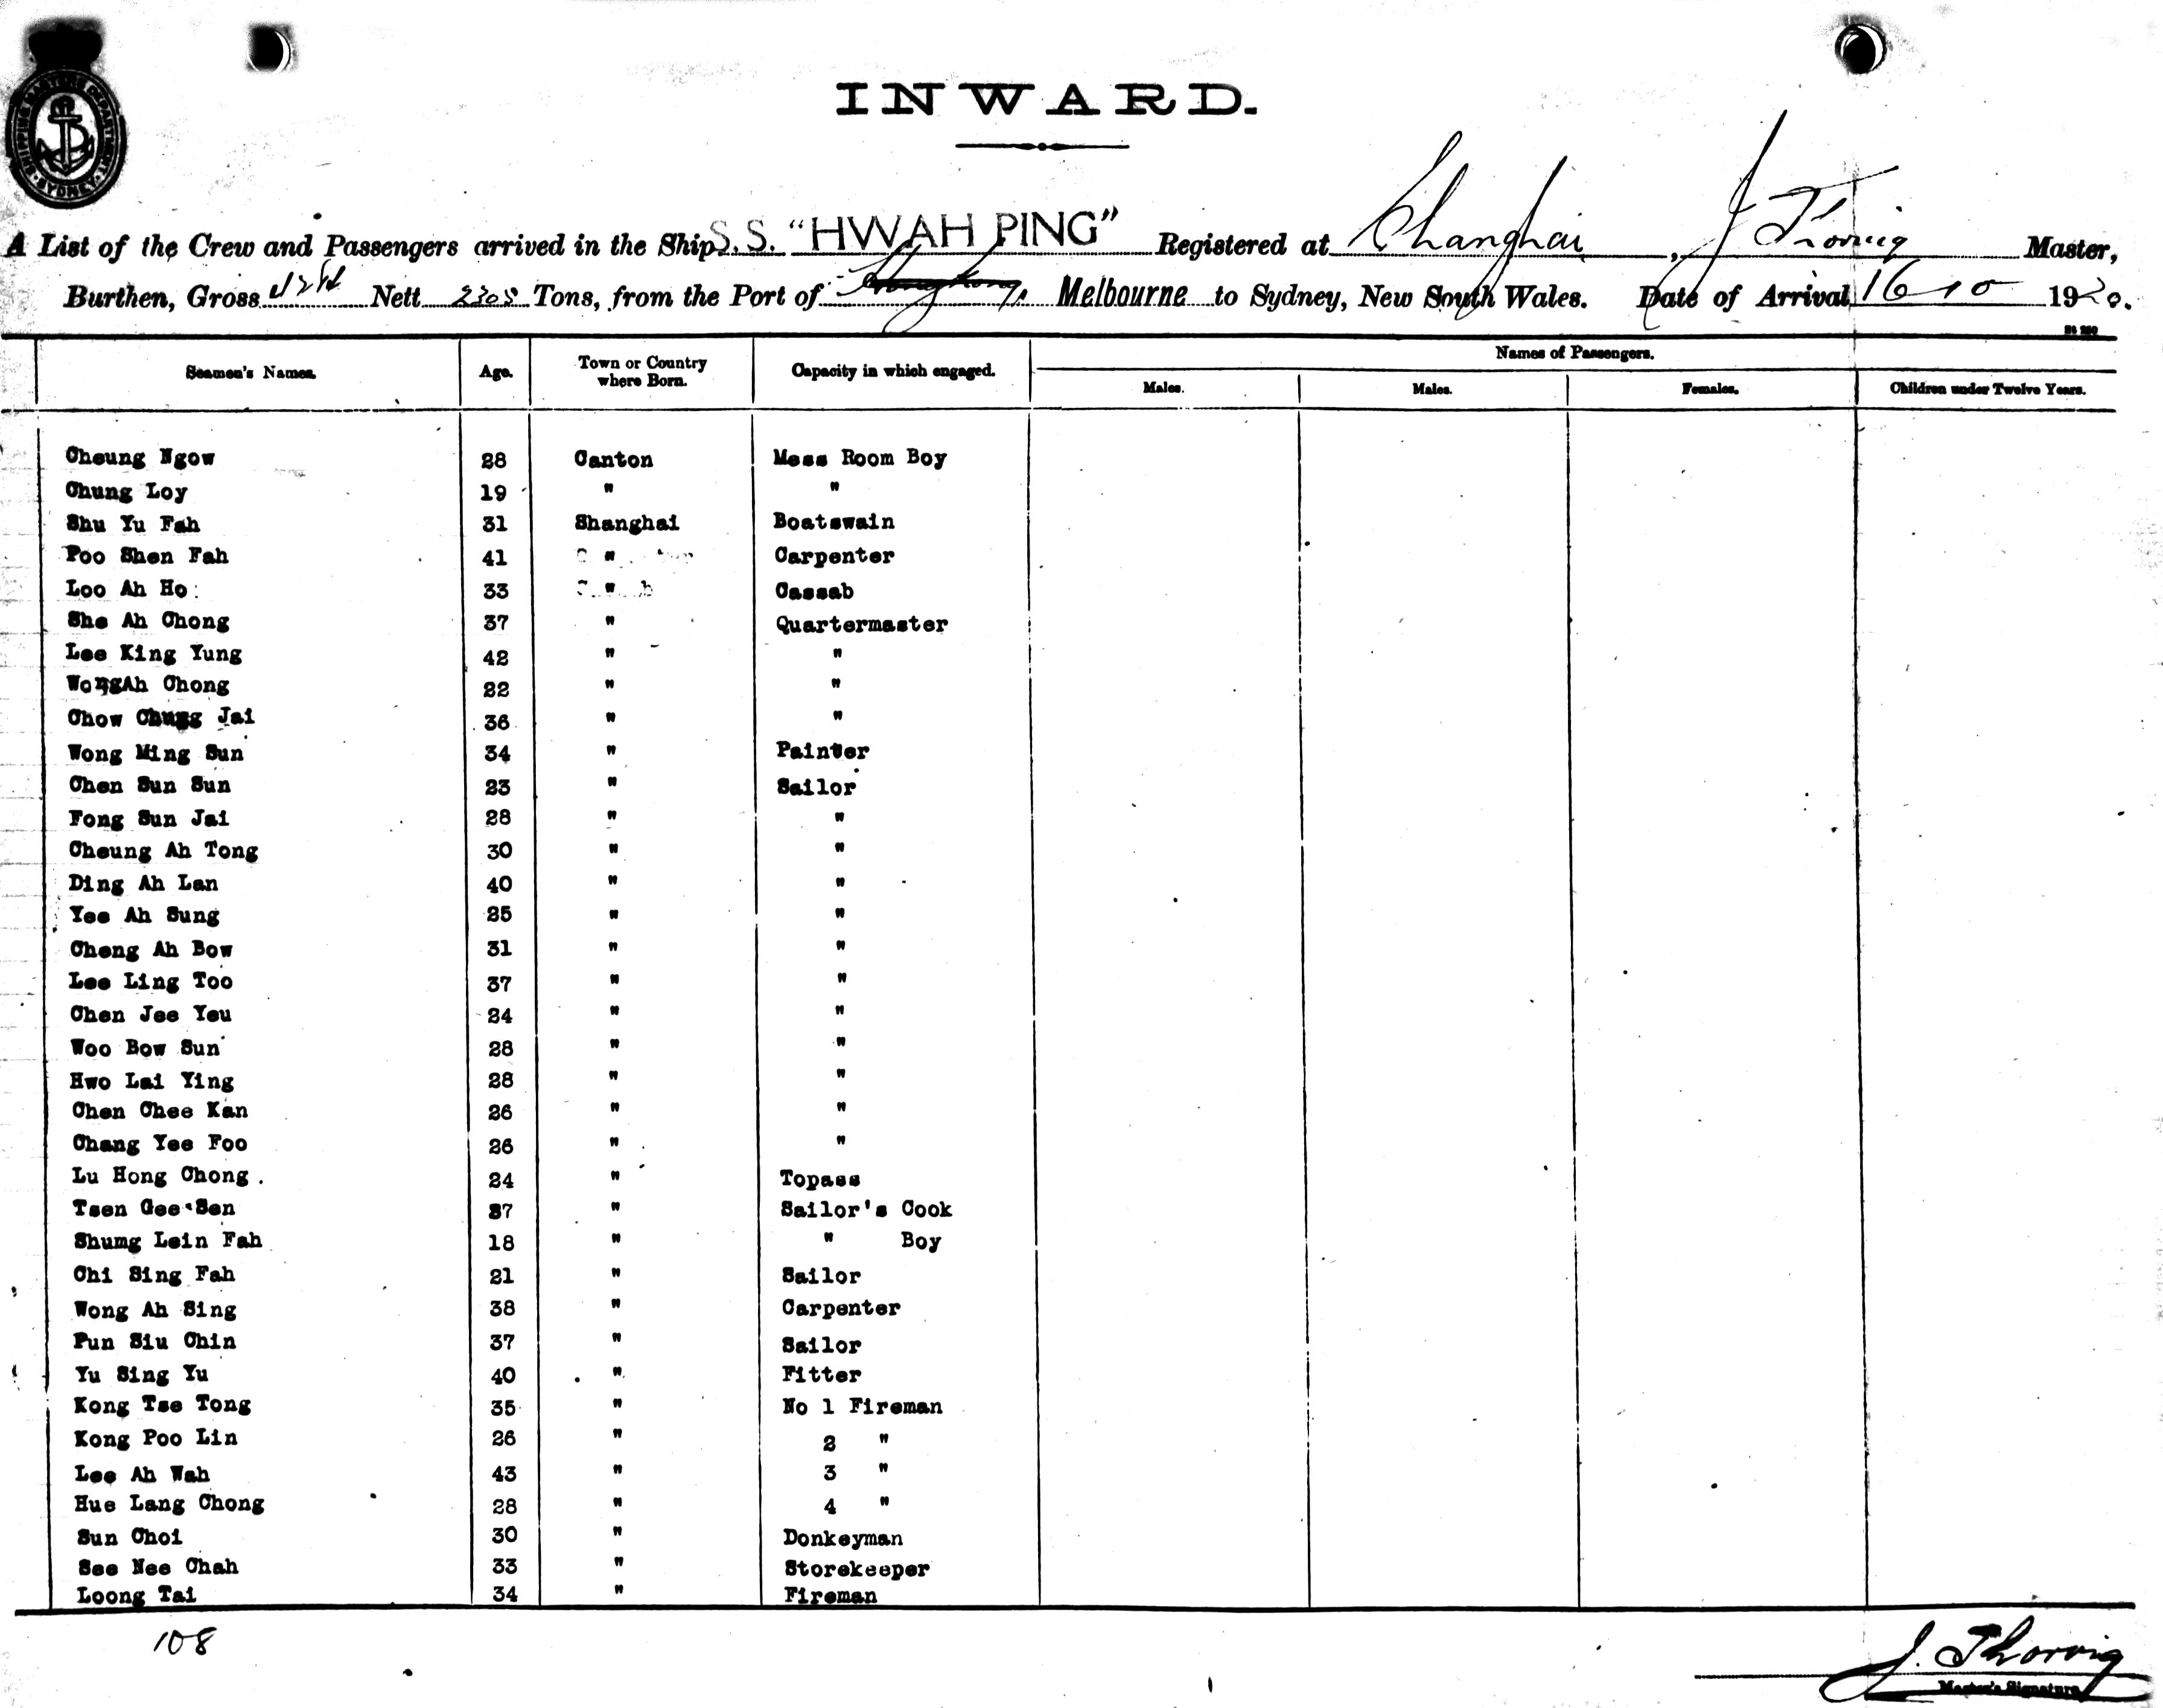 SHIPPING MASTER'S DEPARTMENT SYDNEY
INWARD.
A List of the Crew and Passengers arrived in the Ship S.S. "HWAH PING" Registered at Shanghai, J Thorvig Master,
Burthen, Gross Nett 2305 Tons, from the Port of Hongkong. Melbourne to Sydney, New South Wales. Date of Arrival 16 10 1920.
Names of Passengers.
Seamen's Names. Age. Town or Country where Born. Capacity in which engaged. Males. Males. Females. Children under Twelve Years.
Cheung Ngow 28 Canton Mess Room Boy
Chung Loy 19 " "
Shu Yu Fah 31 Shanghai Boatswain
Poo Shen Fah 41 " Carpenter
Loo Ah Ho 33 " Cassab
She Ah Chong 37 " Quartermaster
Lee King Yung 42 " "
WongAh Chong 22 " "
Chow Chung Jai 36 " "
Wong Ming Sun 34 " Painter
Chen Sun Sun 23 " Sailor
Fong Sun Jai 28 " "
Cheung Ah Tong 30 " "
Ding Ah Lan 40 " "
Yee Ah Sung 25 " "
Cheng Ah Bow 31 " "
Lee Ling Too 37 " "
Chen Jee Yeu 24 " "
Woo Bow Sun 28 " "
Hwo Lai Ying 28 " "
Chen Chee Kan 26 " "
Chang Yee Foo 26 " "
Lu Hong Chong. 24 " Topass
Tsen Gee Sen 37 " Sailor's Cook
Shumg Lein Fah 18 " " Boy
Chi Sing Fah 21 " Sailor
Wong Ah Sing 38 " Carpenter
Pun Siu Chin 37 " Sailor
Yu Sing Yu 40 " Fitter
Kong Tse Tong 35 " No 1 Fireman
Kong Poo Lin 26 " 2 "
Lee Ah Wah 43 " 3 "
Hue Lang Chong 28 " 4 "
Sun Choi 30 " Donkeyman
See Nee Chah 33 " Storekeeper
Loong Tai 34 " Fireman
108
J. Thorvig
Master's Signature